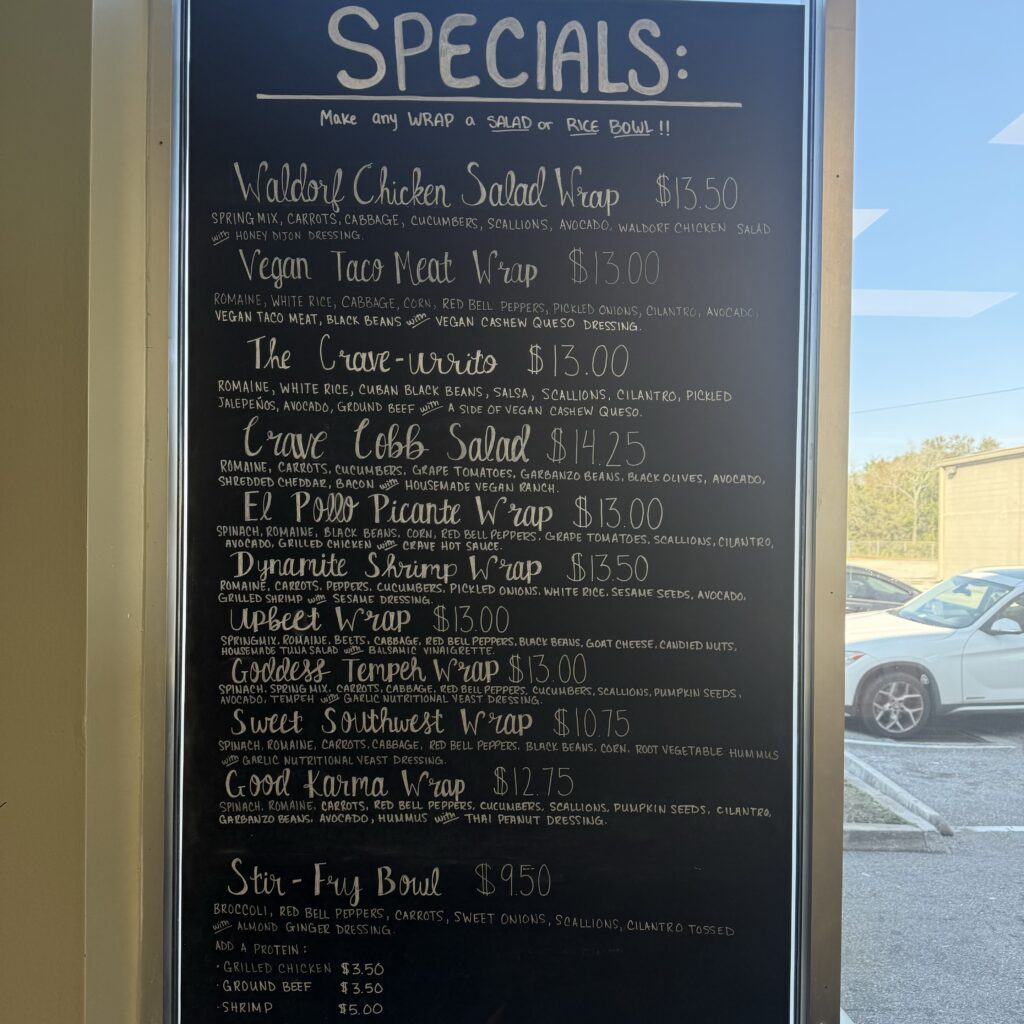 SPECIALS:
Make any WRAP a SALAD or RICE BOWL!!
Waldorf Chicken Salad Wrap $13.50
SPRING MIX, CARROTS, CABBAGE, CUCUMBERS, SCALLIONS, AVOCADO, WALDORF CHICKEN SALAD
with HONEY DIJON DRESSING.
Vegan Taco Meat Wrap $13.00
ROMAINE, WHITE RICE, CABBAGE, CORN, RED BELL PEPPERS, PICKLED ONIONS, CILANTRO, AVOCADO,
VEGAN TACO MEAT, BLACK BEANS with VEGAN CASHEW QUESO DRESSING.
The Crave-urrito $13.00
ROMAINE, WHITE RICE, CUBAN BLACK BEANS, SALSA, SCALLIONS, CILANTRO, PICKLED
JALEPEÑOS, AVOCADO, GROUND BEEF with A SIDE OF VEGAN CASHEW QUESO.
Crave Cobb Salad $14.25
ROMAINE, CARROTS, CUCUMBERS, GRAPE TOMATOES, GARBANZO BEANS, BLACK OLIVES, AVOCADO,
SHREDDED CHEDDAR, BACON with HOUSEMADE VEGAN RANCH.
El Pollo Picante Wrap $13.00
SPINACH, ROMAINE, BLACK BEANS, CORN, RED BELL PEPPERS, GRAPE TOMATOES, SCALLIONS, CILANTRO,
AVOCADO, GRILLED CHICKEN with CRAVE HOT SAUCE.
Dynamite Shrimp Wrap $13.50
ROMAINE, CARROTS, PEPPERS, CUCUMBERS, PICKLED ONIONS, WHITE RICE, SESAME SEEDS, AVOCADO,
GRILLED SHRIMP with SESAME DRESSING.
Upbeet Wrap $13.00
SPRINGMIX, ROMAINE, BEETS, CABBAGE, RED BELL PEPPERS, BLACK BEANS, GOAT CHEESE, CANDIED NUTS,
HOUSEMADE TUNA SALAD with BALSAMIC VINAIGRETTE.
Goddess Tempeh Wrap $13.00
SPINACH, SPRING MIX, CARROTS, CABBAGE, RED BELL PEPPERS, CUCUMBERS, SCALLIONS, PUMPKIN SEEDS,
AVOCADO, TEMPEH with GARLIC NUTRITIONAL YEAST DRESSING.
Sweet Southwest Wrap $10.75
SPINACH, ROMAINE, CARROTS, CABBAGE, RED BELL PEPPERS, BLACK BEANS, CORN, ROOT VEGETABLE HUMMUS
with GARLIC NUTRITIONAL YEAST DRESSING.
Good Karma Wrap $12.75
SPINACH, ROMAINE, CARROTS, RED BELL PEPPERS, CUCUMBERS, SCALLIONS, PUMPKIN SEEDS, CILANTRO,
GARBANZO BEANS, AVOCADO, HUMMUS with THAI PEANUT DRESSING.
Stir-Fry Bowl $9.50
BROCCOLI, RED BELL PEPPERS, CARROTS, SWEET ONIONS, SCALLIONS, CILANTRO TOSSED
with ALMOND GINGER DRESSING.
ADD A PROTEIN:
·GRILLED CHICKEN $3.50
·GROUND BEEF $3.50
·SHRIMP $5.00